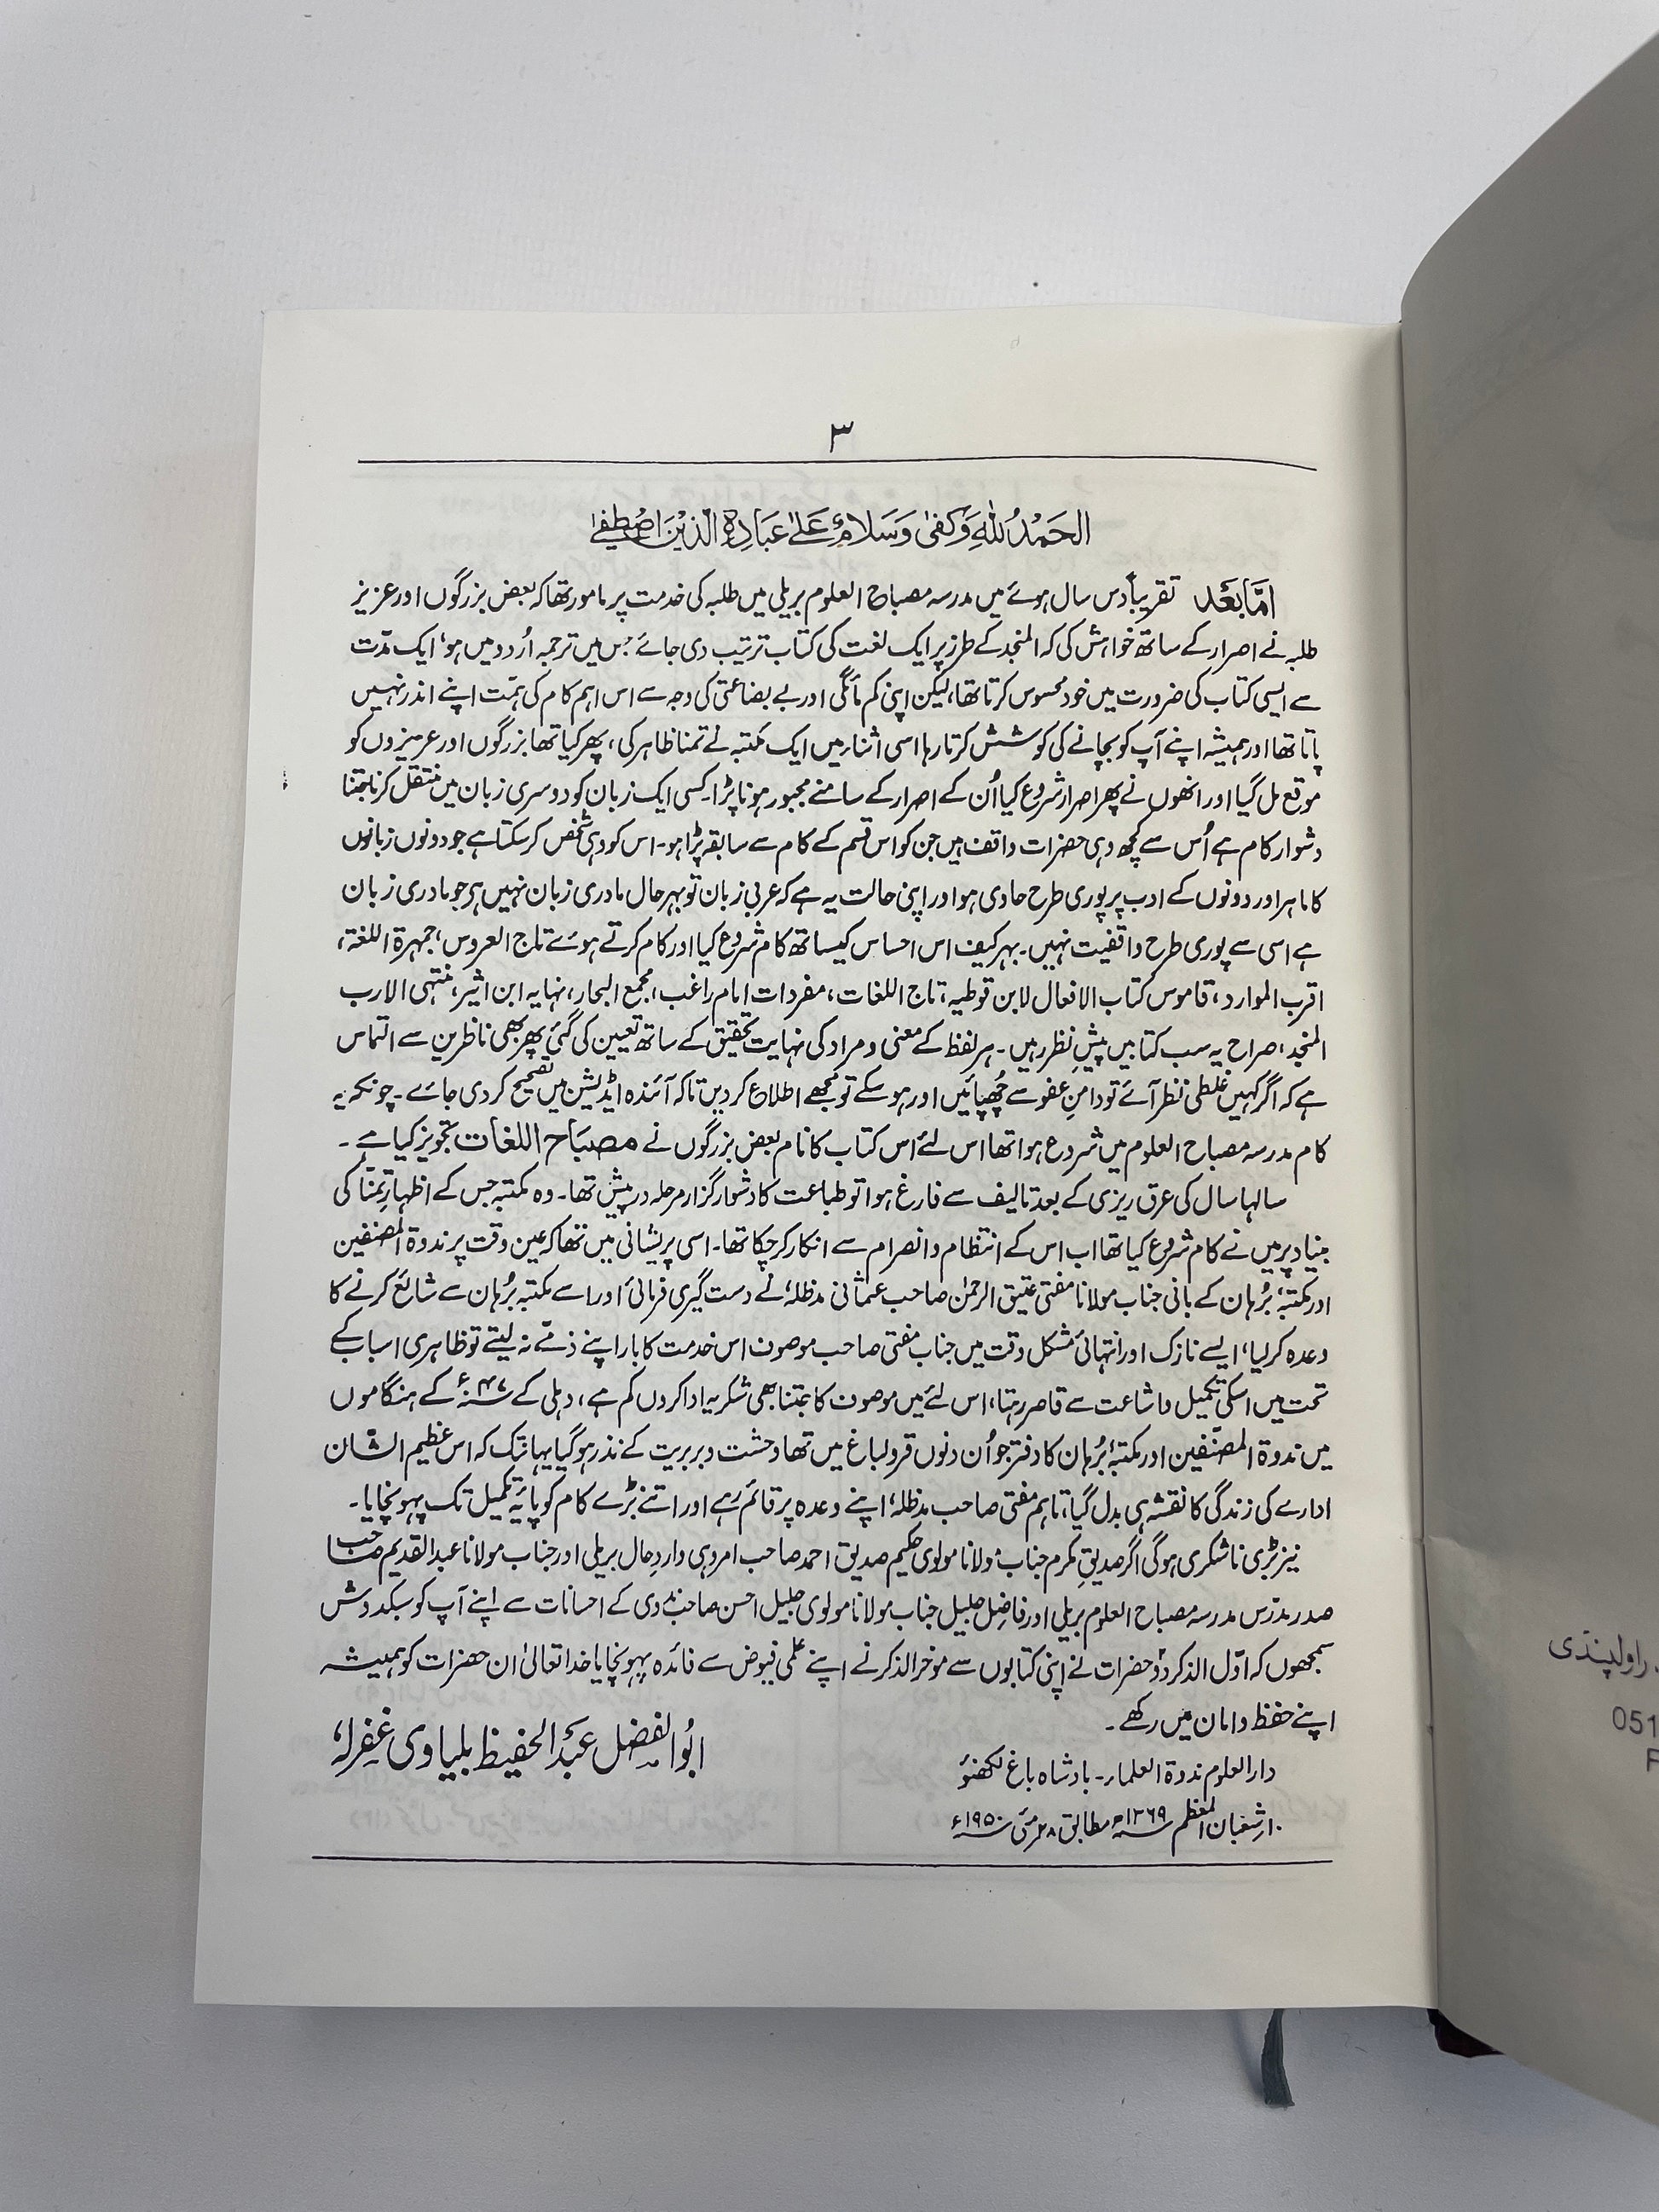 ٣
الحَمْدُ لِلّٰهِ وَكَفٰى وَسَلَامٌ عَلٰى عِبَادِهِ الَّذِيْنَ اصْطَفٰى
امّا بَعْد تقریباً دس سال ہوئے میں مدرسہ مصباح العلوم بریلی میں طلبہ کی خدمت پر مامور تھا کہ بعض بزرگوں اور عزیز
طلبہ نے اصرار کے ساتھ خواہش کی کہ المنجد کے طرز پر ایک لغت کی کتاب ترتیب دی جائے جس میں ترجمہ اُردو میں ہو، ایک مدّت
سے ایسی کتاب کی ضرورت میں خود محسوس کرتا تھا، لیکن اپنی کم مائگی اور بے بضاعتی کی وجہ سے اس اہم کام کی ہمّت اپنے اندر نہیں
پاتا تھا اور ہمیشہ اپنے آپ کو بچانے کی کوشش کرتا رہا اسی اثناء میں ایک مکتبہ نے تمنا ظاہر کی، پھر کیا تھا بزرگوں اور عزیزوں کو
موقع مل گیا اور انھوں نے پھر اصرار شروع کیا اُن کے اصرار کے سامنے مجبور ہونا پڑا۔ کسی ایک زبان کو دوسری زبان میں منتقل کرنا جتنا
دشوار کام ہے اُس سے کچھ وہی حضرات واقف ہیں جن کو اس قسم کے کام سے سابقہ پڑا ہو۔ اس کو وہی شخص کر سکتا ہے جو دونوں زبانوں
کا ماہر اور دونوں کے ادب پر پوری طرح حاوی ہو اور اپنی حالت یہ ہے کہ عربی زبان تو بہر حال مادری زبان نہیں ہی جو مادری زبان
ہے اسی سے پوری طرح واقفیت نہیں۔ بہر کیف اس احساس کیساتھ کام شروع کیا اور کام کرتے ہوئے تاج العروس، جمہرۃ اللغۃ،
اقرب الموارد، قاموس کتاب الافعال لابن قوطیہ، تاج اللغات، مفردات امام راغب، مجمع البحار، نہایہ ابن اثیر، منتہی الارب
المنجد، صراح یہ سب کتابیں پیشِ نظر رہیں۔ ہر لفظ کے معنی و مراد کی نہایت تحقیق کے ساتھ تعیین کی گئی پھر بھی ناظرین سے التماس
ہے کہ اگر کہیں غلطی نظر آئے تو دامنِ عفو سے چُھپائیں اور ہو سکے تو مجھے اطلاع کر دیں تاکہ آئندہ ایڈیشن میں تصحیح کر دی جائے۔ چونکہ یہ
کام مدرسہ مصباح العلوم میں شروع ہوا تھا اس لئے اس کتاب کا نام بعض بزرگوں نے مصبَاح اللغات تجویز کیا ہے۔
سالہا سال کی عرق ریزی کے بعد تالیف سے فارغ ہوا تو طباعت کا دشوار گزار مرحلہ درپیش تھا۔ وہ مکتبہ جس کے اظہارِ تمنّا کی
بنیاد پر میں نے کام شروع کیا تھا اب اس کے انتظام و انصرام سے انکار کر چکا تھا۔ اسی پریشانی میں تھا کہ عین وقت پر ندوۃ المصنفین
اور مکتبۂ بُرہان کے بانی جناب مولانا مفتی عتیق الرحمٰن صاحب عثمانی مدظلہٗ نے دست گیری فرمائی اور اسے مکتبہ بُرہان سے شائع کرنے کا
وعدہ کر لیا، ایسے نازک اور انتہائی مشکل وقت میں جناب مفتی صاحب موصوف اس خدمت کا بار اپنے ذمّے نہ لیتے تو ظاہری اسباب کے
تحت میں اسکی تکمیل و اشاعت سے قاصر رہتا، اس لئے میں موصوف کا جتنا بھی شکریہ ادا کروں کم ہے، دہلی کے ۴۷ء کے ہنگاموں
میں ندوۃ المصنّفین اور مکتبۂ بُرہان کا دفتر جو اُن دنوں قرولباغ میں تھا وحشت و بربریت کے نذر ہو گیا یہانتک کہ اس عظیم الشّان
ادارے کی زندگی کا نقشہ ہی بدل گیا، تاہم مفتی صاحب مدظلہٗ اپنے وعدہ پر قائم رہے اور اتنے بڑے کام کو پایۂ تکمیل تک پہونچایا۔
نیز بڑی ناشکری ہوگی اگر صدیقِ مکرم جناب مولانا مولوی حکیم صدیق احمد صاحب امروہی واردِ حال بریلی اور جناب مولانا عبد القدیم صاحب
صدر مدرّس مدرسہ مصباح العلوم بریلی اور فاضِل جلیل جناب مولانا مولوی جلیل احسن صاحب ندوی کے احسانات سے اپنے آپ کو سبکدوش
سمجھوں کہ اوّل الذکر دو حضرات نے اپنی کتابوں سے موخر الذکر نے اپنے علمی فیوض سے فائدہ پہونچایا خدا تعالیٰ ان حضرات کو ہمیشہ
اپنے حفظ و امان میں رکھے۔
ابُو الفضل عَبْد الحفیظ بلیاوی غفِرلہٗ
دارالعلوم ندوۃ العلماء۔ بادشاہ باغ لکھنؤ
۱۰؍ شعبان المعظم ۱۳۶۹ھ مطابق ۲۸ مئی ۱۹۵۰ء
راولپنڈی
051